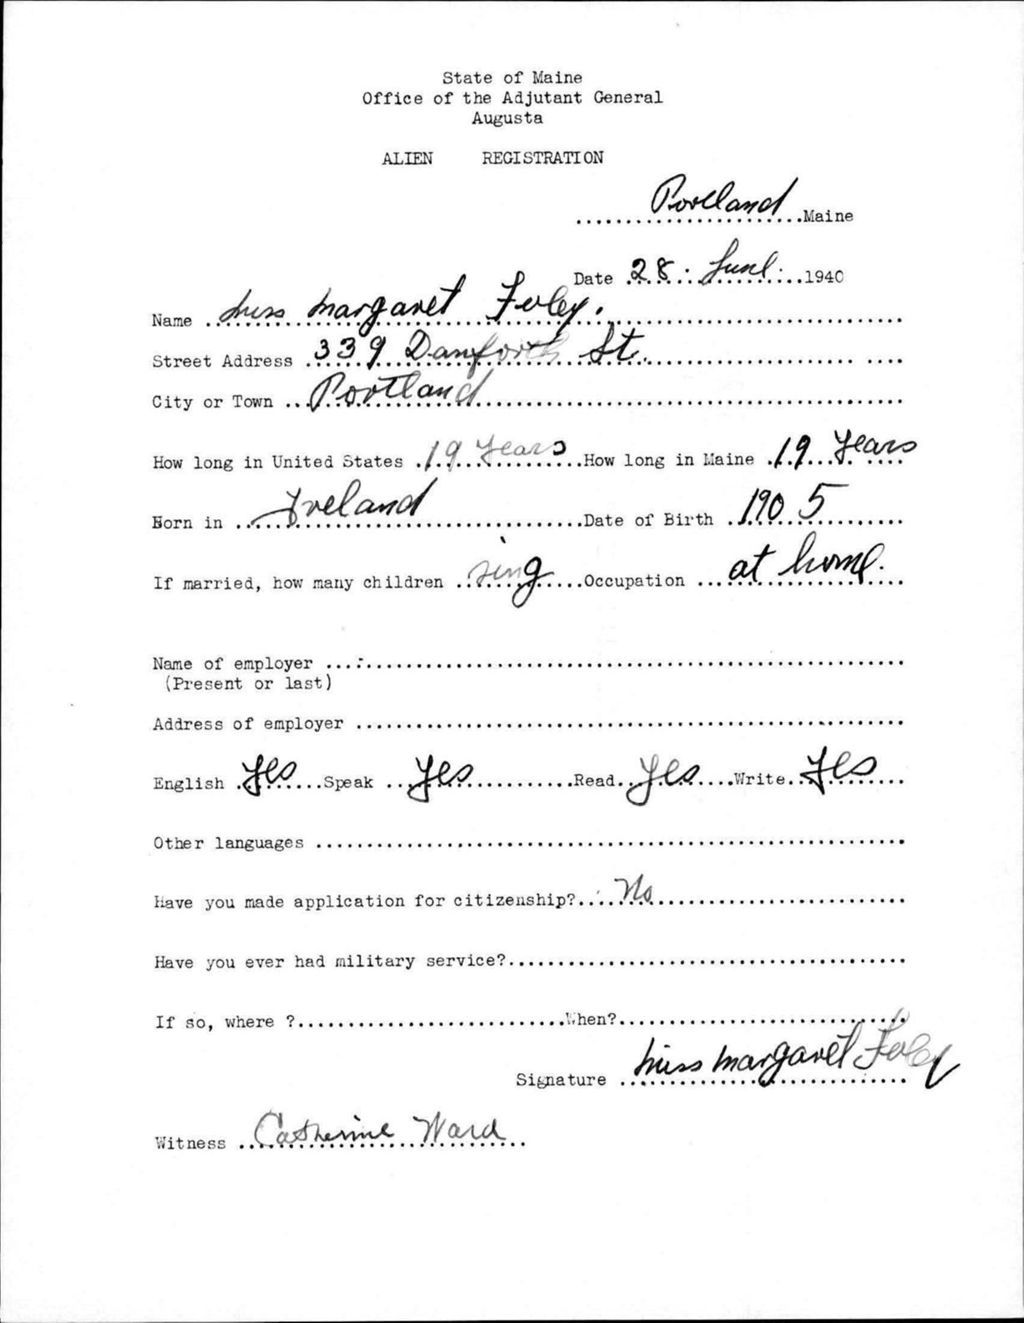 State of Maine
Office of the Adjutant General
Augusta
ALIEN REGISTRATION
Portland Maine
Date 28 June 1940
Name Miss Margaret Foley.
Street Address 339 Danforth St.
City or Town Portland
How long in United States 19 Years How long in Maine 19 Years
Born in Ireland Date of Birth 1905
If married, how many children sing Occupation at home.
Name of employer
(Present or last)
Address of employer
English Yes Speak Yes Read Yes Write Yes
Other languages
Have you made application for citizenship? No
Have you ever had military service?
If so, where ? When?
Signature Miss Margaret Foley
Witness Catherine Ward